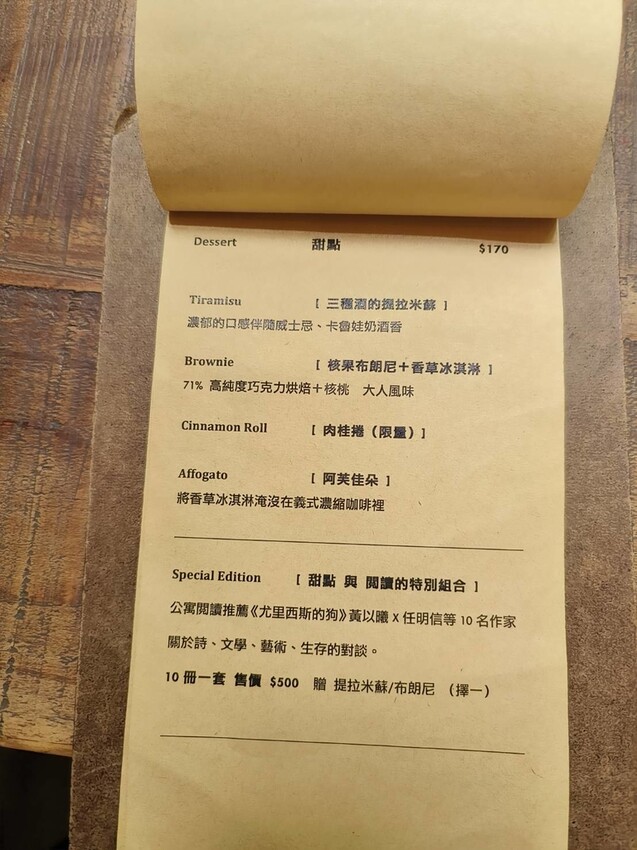 Dessert 甜點 $170
Tiramisu [ 三種酒的提拉米蘇 ]
濃郁的口感伴隨威士忌、卡魯娃奶酒香
Brownie [ 核果布朗尼＋香草冰淇淋 ]
71% 高純度巧克力烘焙＋核桃 大人風味
Cinnamon Roll [ 肉桂捲（限量）]
Affogato [ 阿芙佳朵 ]
將香草冰淇淋淹沒在義式濃縮咖啡裡
Special Edition [ 甜點 與 閱讀的特別組合 ]
公寓閱讀推薦《尤里西斯的狗》黃以曦 X 任明信等 10 名作家
關於詩、文學、藝術、生存的對談。
10 冊一套 售價 $500 贈 提拉米蘇/布朗尼 （擇一）